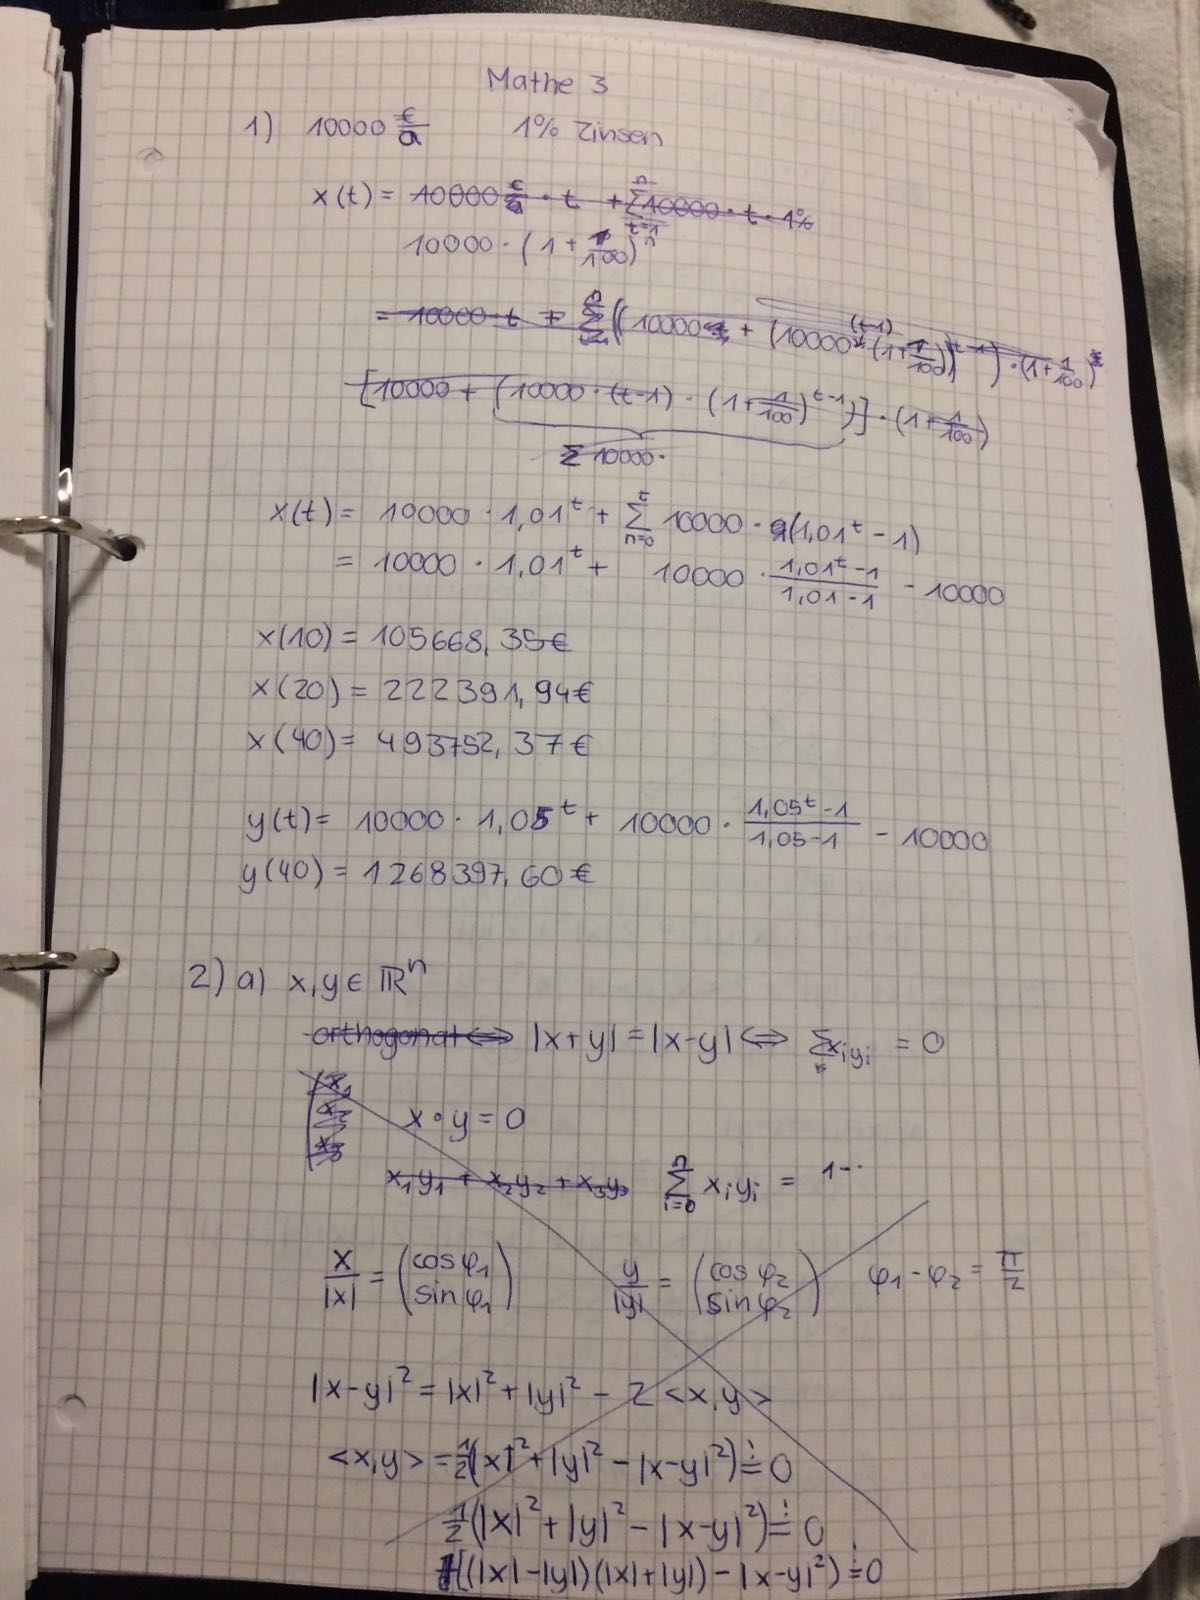 Mathe 3
1) 10000 €/a 1% Zinsen
x(t) = 10000 €/a · t + ∑_{t=1}^{n} 10000 · t · 1%
10000 · (1 + 1/100)^n
= 10000 · t + ∑ ((10000 + (10000 (t-1) · (1+1/100))^{t-1}) · (1+1/100)
[10000 + (10000 · (t-1) · (1+1/100)^{t-1})] · (1+1/100)
∑ 10000 ·
x(t) = 10000 · 1,01^t + ∑_{n=0}^{t} 10000 · (1,01^t - 1)
= 10000 · 1,01^t + 10000 · (1,01^t - 1)/(1,01 - 1) - 10000
x(10) = 105668,35€
x(20) = 222391,94€
x(40) = 493752,37€
y(t) = 10000 · 1,05^t + 10000 · (1,05^t - 1)/(1,05 - 1) - 10000
y(40) = 1268397,60€
2) a) x,y ∈ ℝ^n
orthogonal ⟺ |x+y| = |x-y| ⟺ ∑ x_i y_i = 0
x_1
x_2
x_3
x • y = 0
x_1 y_1 + x_2 y_2 + x_3 y_3 ∑_{i=0}^{n} x_i y_i =
x/|x| = (cos φ_1 sin φ_1) y/|y| = (cos φ_2 sin φ_2) φ_1 - φ_2 = π/2
|x-y|² = |x|² + |y|² - 2 <x,y>
<x,y> = 1/2 (|x|² + |y|² - |x-y|²) != 0
1/2 (|x|² + |y|² - |x-y|²) != 0
[(|x| - |y|)(|x| + |y|) - |x-y|²) != 0